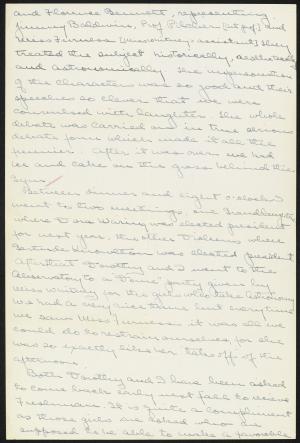 and Florence Bennett, representing
Jimmy Baldwin, Prof. Fletcher
Miss Furness They
treated the subject historically, aesthetically
and Astronomically. The impersonation
of the characters was so good and their
speeches so clever that we were
convulsed with laughter. The whole
debate was carried on in true serious
debate form which made it all the
funnier. After it was over we had
ice and cake on the grass behind the
gym.
Between dinner and eight o'clock I
went to two meetings, one
where Dora Waring was elected president
for next year, the other T. alerns where
Gertrude was elected president
After that Dorothy and I went to the
Observatory to a "Dome" party given by
Miss Whitney for the girls who take Astronomy
We had a very nice time but every time
we saw Miss Furness it was all we
could do to restrain ourselves, for she
was so exactly like her take off of the
afternoon.
Both Dorothy and I have been asked
to come back early next fall to receive
Freshmen. It is quite a compliment
as those girls are asked who are
supposed to be able to make a favorable